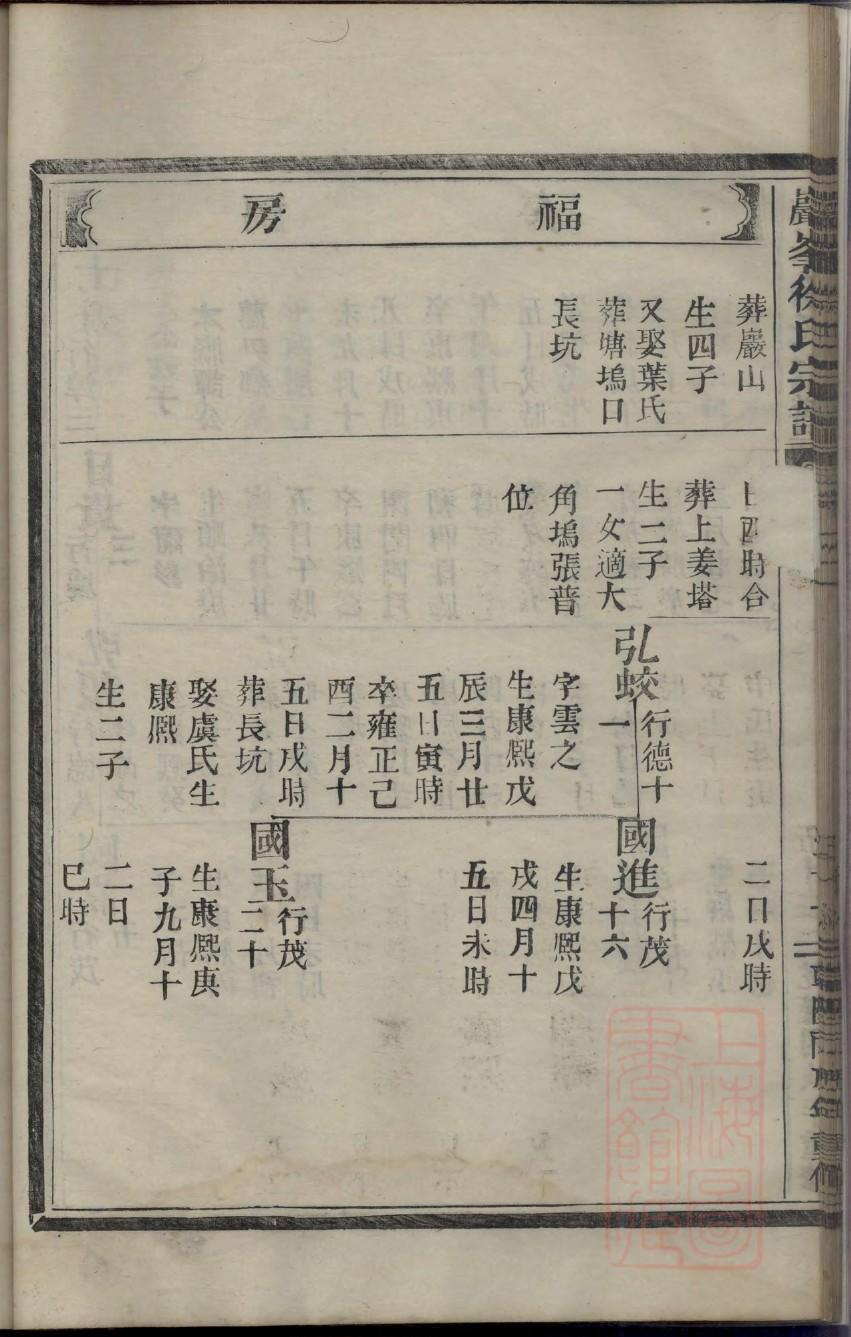 巖峯徐氏宗譜
福房
葬巖山
生四子
又娶葉氏
葬塘塢口
長坑
日酉時合
葬上姜塔
生二子
一女適大
角塢張普
位
弘蛟行德十一
字雲之
生康熙戊
辰三月廿
五日寅時
卒雍正己
酉二月十
五日戌時
葬長坑
娶虞氏生
康熙
生二子
二日戌時
國進行茂十六
生康熙戊
戌四月十
五日未時
國玉行茂二十
生康熙庚
子九月十
二日
巳時
上海圖書館藏